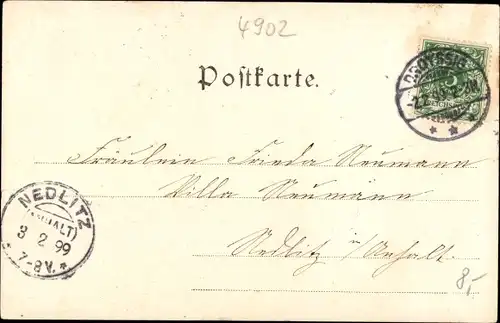 4902
Postkarte.
DROYSSIG
-2.2.99. 2-3N
5
Fräulein Frieda Neumann
Villa Neumann
Nedlitz in/Anhalt.
NEDLITZ
(ANHALT)
3 2 99
7-8V.
8,-